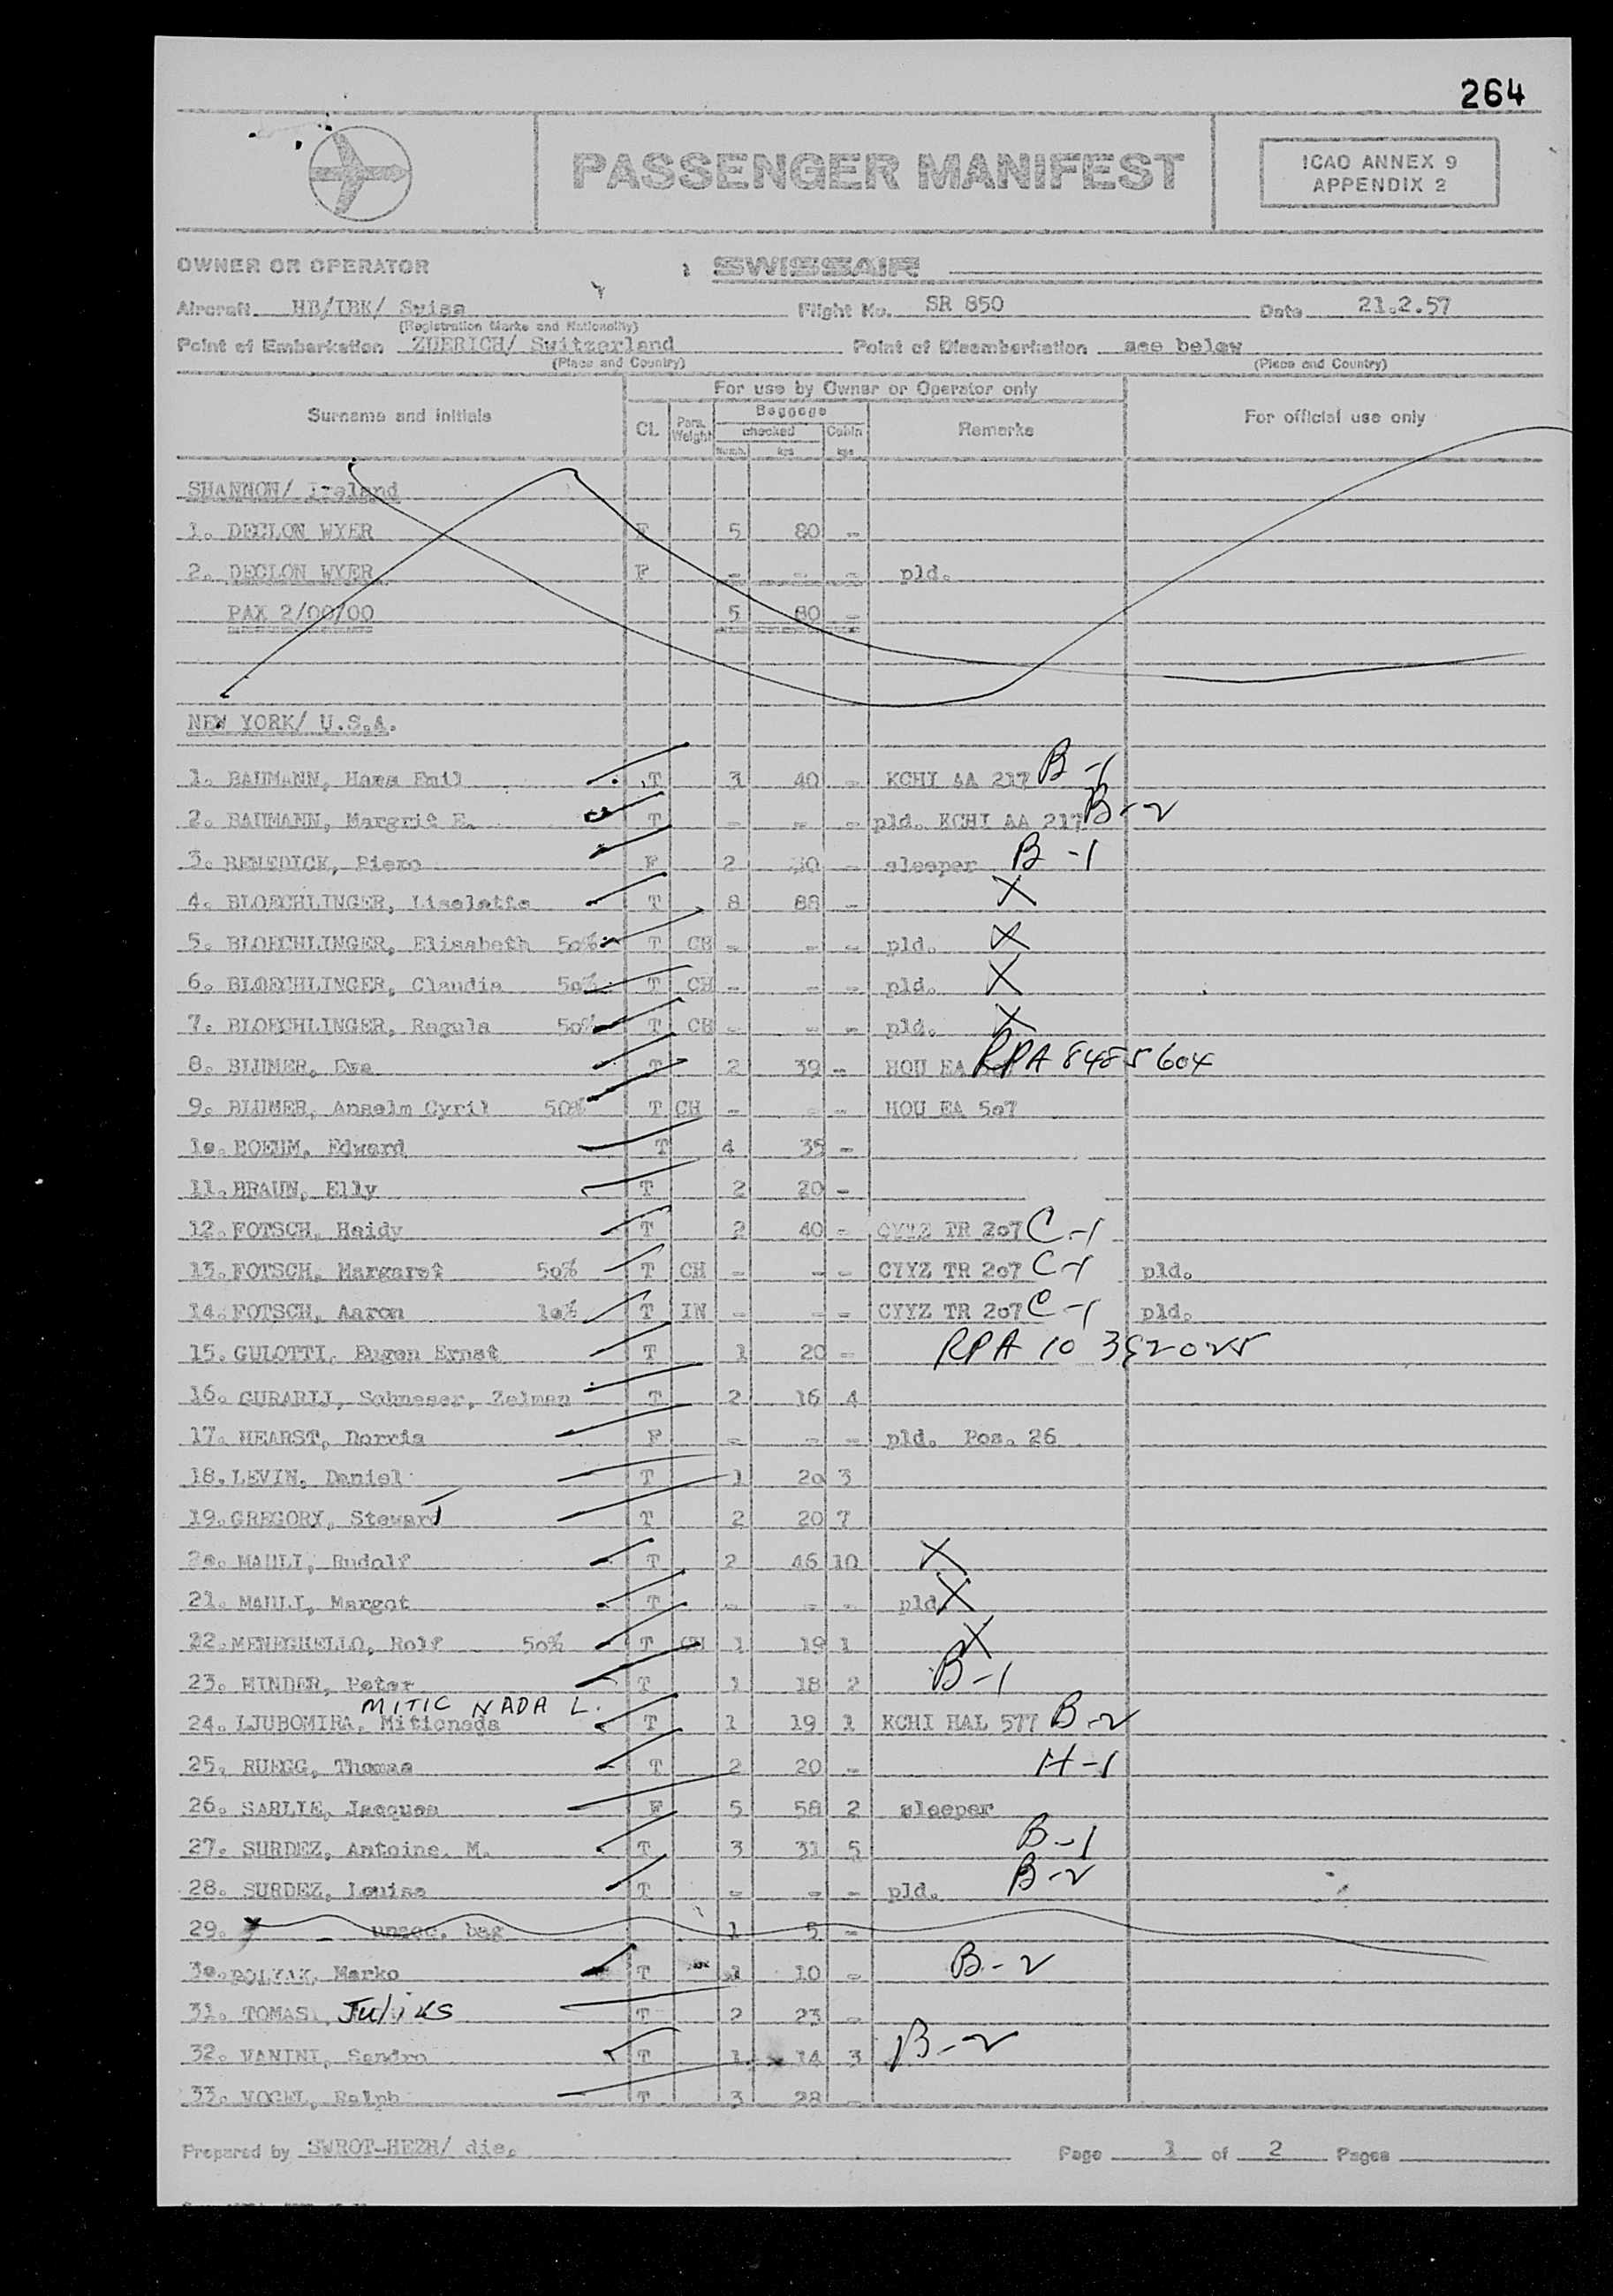 264
PASSENGER MANIFEST
ICAO ANNEX 9
APPENDIX 2
OWNER OR OPERATOR SWISSAIR
Aircraft HB/IBK/ Swiss Flight No. SR 850 Date 21.2.57
(Registration Marks and Nationality)
Point of Embarkation ZUERICH/ Switzerland Point of Disembarkation see below
(Place and Country) (Place and Country)
For use by Owner or Operator only
Surname and initials CL Pass. Weight Baggage checked Numb. kgs Cabin kgs Remarks For official use only
SHANNON/ Ireland
1. DECLON WYER F 5 80 -
2. DECLON WYER F - - - pld.
PAX 2/00/00 5 80 -
NEW YORK/ U.S.A.
1. BAUMANN, Hans Emil T 3 40 - KCHI AA 217 B-1
2. BAUMANN, Margrit E. T - - - pld. KCHI AA 217 B-2
3. BENEDICK, Piero F 2 30 - sleeper B-1
4. BLOECHLINGER, Liselotte T 8 88 - X
5. BLOECHLINGER, Elisabeth 50% T CH - - - pld. X
6. BLOECHLINGER, Claudia 50% T CH - - - pld. X
7. BLOECHLINGER, Regula 50% T CH - - - pld. X
8. BLUMER, Eva T 2 39 - HOU EA RPA 8485604
9. BLUMER, Anselm Cyril 50% T CH - - - HOU EA 507
10. BOEHM, Edward T 4 35 -
11. BRAUN, Elly T 2 20 -
12. FOTSCH, Heidy T 2 40 - CYYZ TR 207 C-1
13. FOTSCH, Margaret 50% T CH - - - CYYZ TR 207 C-1 pld.
14. FOTSCH, Aaron 10% T IN - - - CYYZ TR 207 C-1 pld.
15. GULOTTI, Eugen Ernst T 1 20 - RPA 10
16. GURARIJ, Schneser, Zelman T 2 16 4
17. HEARST, Dorris F - - - pld. Pos. 26
18. LEVIN, Daniel T 1 20 3
19. GREGORY, Steward T 2 20 7
20. MAULI, Rudolf T 2 46 10 X
21. MAULI, Margot T - - - pld. X
22. MENEGHELLO, Rolf 50% T CH 1 19 1 X
23. MINDER, Peter T 1 18 2 B-1
MITIC NADA L.
24. LJUBOMIRA, Miticnada T 1 19 1 KCHI HAL 577 B-2
25. RUEGG, Thomas T 2 20 - H-1
26. SARLIE, Jacques F 5 58 2 sleeper
27. SURDEZ, Antoine. M. T 3 31 5 B-1
28. SURDEZ, Louise T - - - pld. B-2
29. unacc. bag 1 5 -
30. POLYAK, Marko T 1 10 - B-2
31. TOMAS, Julius T 2 23 -
32. VANINI, Sandro T 1 14 3 B-2
33. VOGEL, Ralph T 3 28 -
Prepared by SWROT-HEZH/ die. Page 1 of 2 Pages